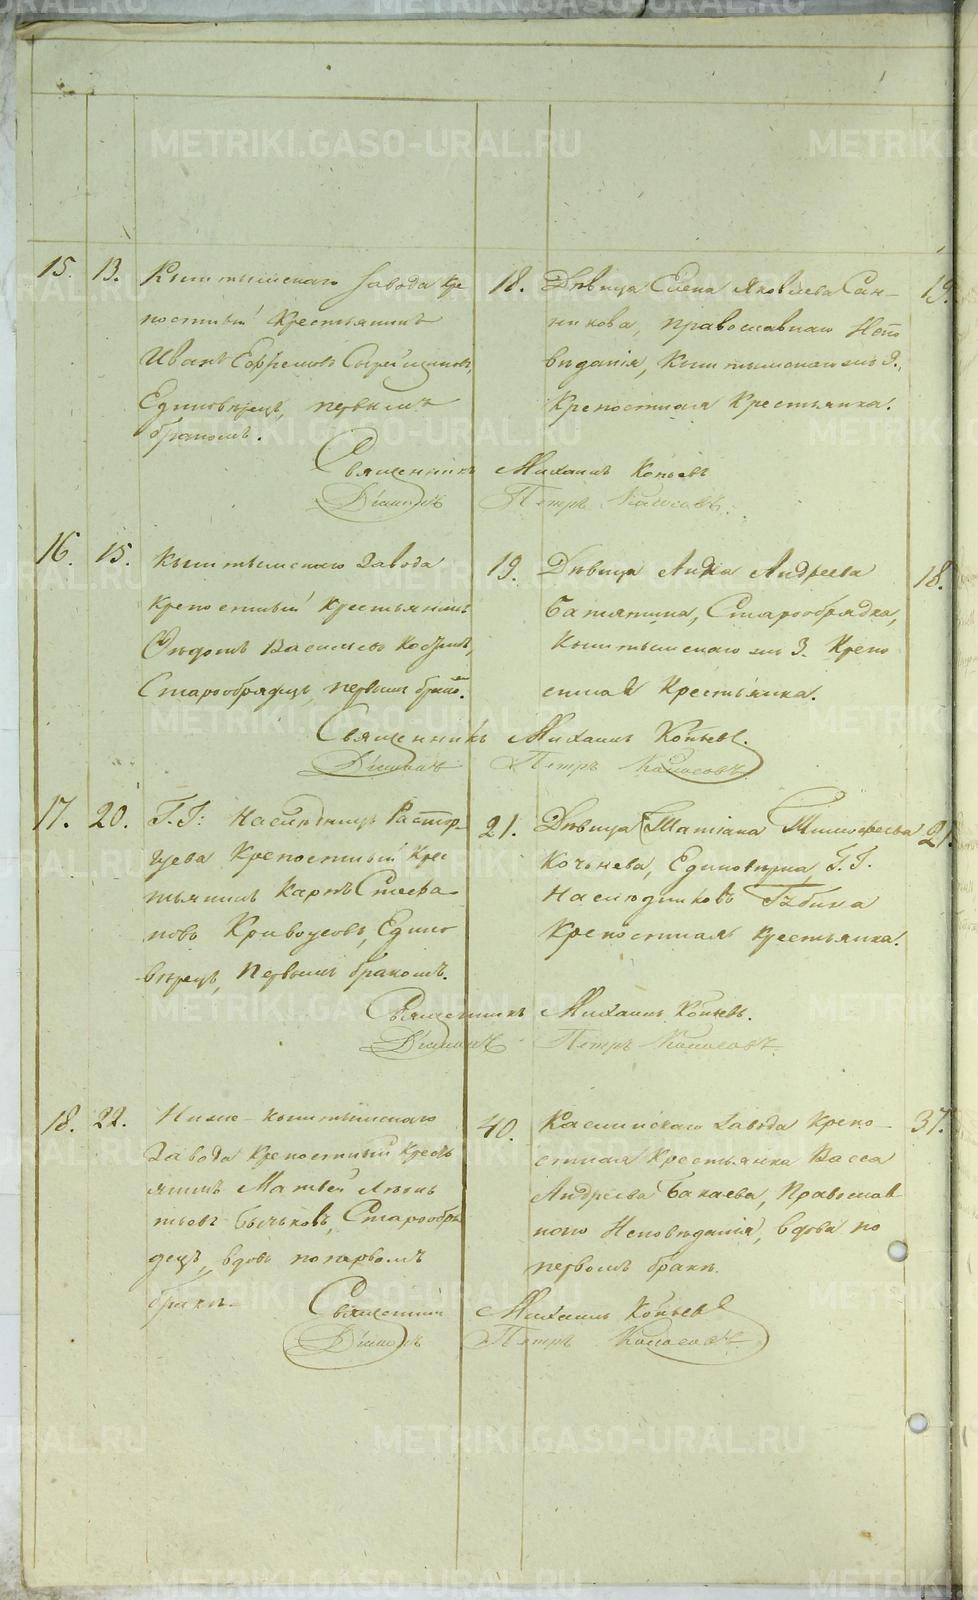 15. 13. Кыштымскаго Завода Кре
постный Крестьянинъ
Иванъ Ефремовъ
Единоверецъ, первымъ
бракомъ.
18. Дѣвица Елена Яковлева Сан-
никова, православнаго Испо
вѣданія, Кыштымскаго
Крепостная Крестьянка.
19.
Священникъ Михаилъ Копьевъ
Діаконъ Петръ Колосовъ.
16. 15. Кыштымскаго Завода
Крепостный Крестьянинъ
Ѳедотъ Васильевъ
Старообрядецъ, первымъ брако.
19. Дѣвица Анна Андреева
Батятина, Старообрядка,
Кыштымскаго З. Крепо
стная Крестьянка.
18.
Священникъ Михаилъ Копьевъ.
Діаконъ Петръ Колосовъ
17. 20. Г. Г: Наследницъ Растор-
гуева Крепостный Крес
тьянинъ Карпъ Стефа-
новъ Кривоусовъ, Едино
верецъ, Первымъ бракомъ.
21. Дѣвица Татіана Тимофеева
Кочнева, Единоверка, Г. Г.
Наследниковъ Губина
Крепостная Крестьянка.
21.
Священникъ Михаилъ Копьевъ.
Діаконъ Петръ Колосовъ.
18. 22. Низне-кыштымскаго
Завода Крепостный Кресть
янинъ Матвей Леон
тьевъ Бычковъ, Старообря
децъ, вдовъ попервомъ
браке.
40. Каслинскаго Завода Крепо-
стная Крестьянка Васса
Андреева Бакаева, Православ
наго Исповѣданія, вдова по
первомъ браке.
37.
Священникъ Михаилъ Копьевъ
Діаконъ Петръ Колосовъ
METRIKI.GASO-URAL.RU